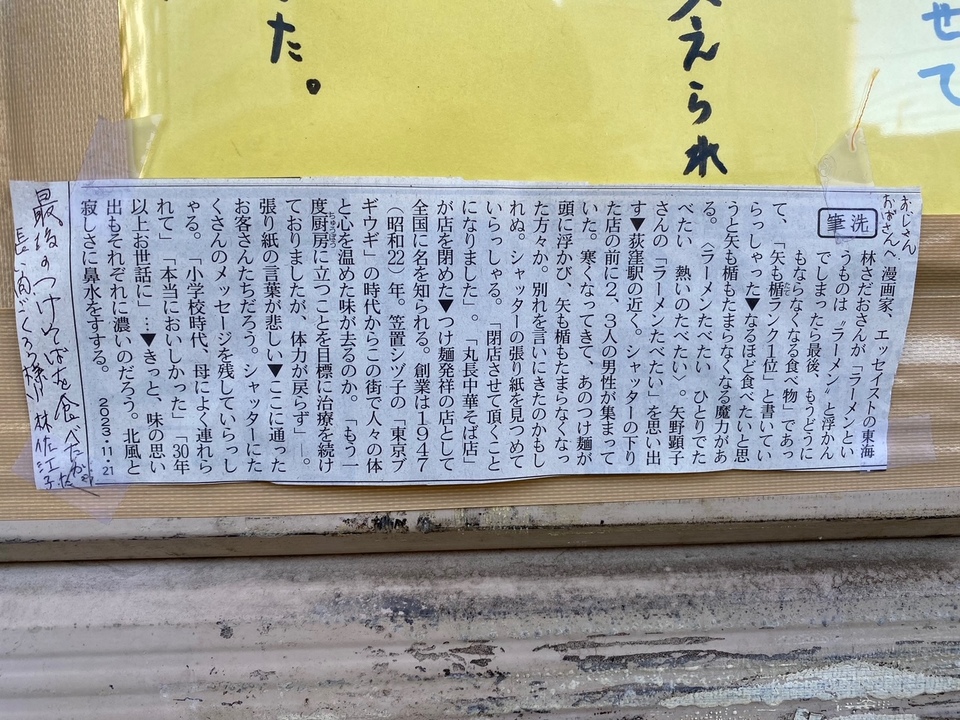 せて
えられ
た。
おじさん
おばさんへ
筆洗
漫画家、エッセイストの東海
林さだおさんが「ラーメンとい
うものは〝ラーメン〟と浮かん
でしまったら最後、もうどうに
もならなくなる食べ物」であっ
て、「矢も楯ランク一位」と書いてい
らっしゃった▼なるほど食べたいと思
うと矢も楯もたまらなくなる魔力があ
る。〈ラーメンたべたい ひとりでた
べたい 熱いのたべたい〉。矢野顕子
さんの「ラーメンたべたい」を思い出
す▼荻窪駅の近く。シャッターの下り
た店の前に2、3人の男性が集まって
いた。寒くなってきて、あのつけ麺が
頭に浮かび、矢も楯もたまらなくなっ
た方々か。別れを言いにきたのかもし
れぬ。シャッターの張り紙を見つめて
いらっしゃる。「閉店させて頂くこと
になりました」。「丸長中華そば店」
が店を閉めた▼つけ麺発祥の店として
全国に名を知られる。創業は1947
(昭和22)年。笠置シヅ子の「東京ブ
ギウギ」の時代からこの街で人々の体
と心を温めた味が去るのか。「もう一
度厨房に立つことを目標に治療を続け
ちゅうぼう
ておりましたが、体力が戻らず―」。
張り紙の言葉が悲しい▼ここに通った
お客さんたちだろう。シャッターにた
くさんのメッセージを残していらっし
ゃる。「小学校時代、母によく連れら
れて」「本当においしかった」「30年
以上お世話に」…▼きっと、味の思い
出もそれぞれに濃いのだろう。北風と
寂しさに鼻水をすする。 2023・11・21
最後のつけそばを食べたかった
長い間ごくろう様 林佐江子